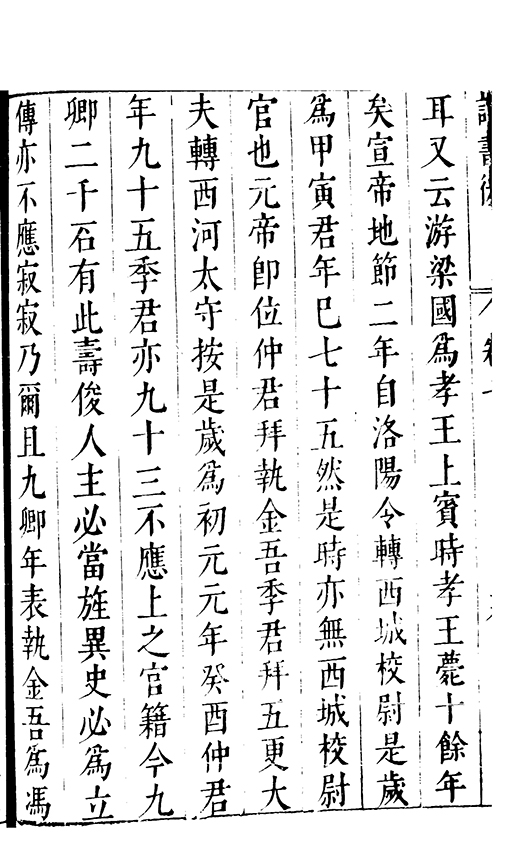 讀書後
卷
耳又云游梁國爲孝王上賓時孝王薨十餘年
矣宣帝地節二年自洛陽令轉西城校尉是歲
爲甲寅君年巳七十五然是時亦無西城校尉
官也元帝卽位仲君拜執金吾季君拜五更大
夫轉西河太守按是歲爲初元元年癸酉仲君
年九十五季君亦九十三不應上之官籍今九
卿二千石有此壽俊人主必當旌異史必爲立
傳亦不應寂寂乃爾且九卿年表執金吾爲馮